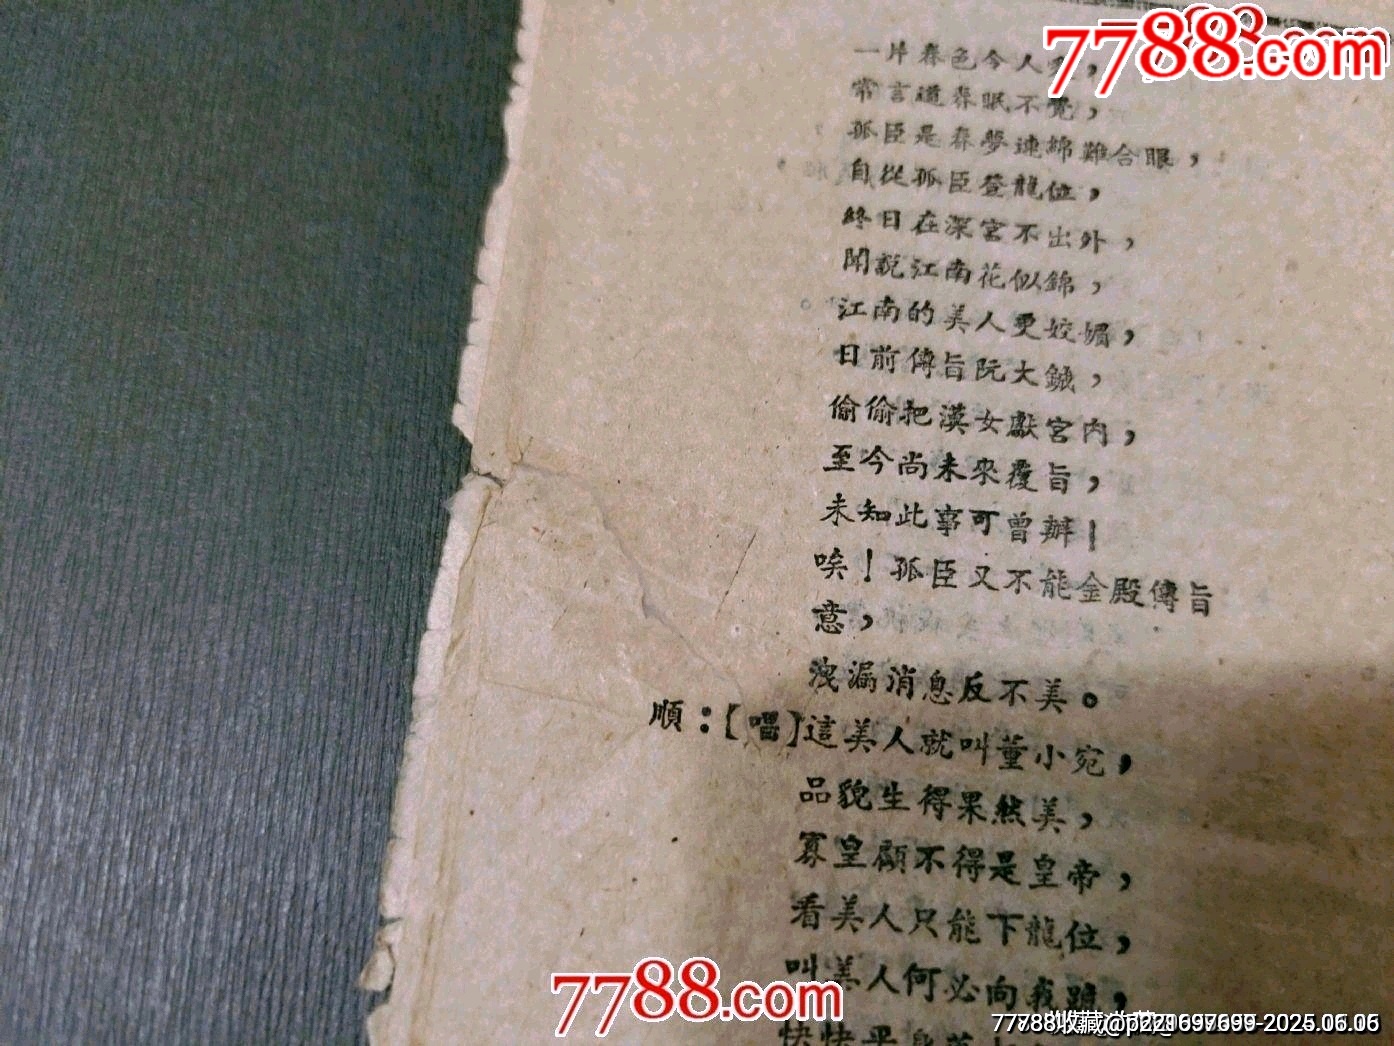 7788.com
一片春色令人
常言道春眠不覺，
孤臣是春夢連綿難合眼，
自從孤臣登龍位，
終日在深宮不出外，
聞說江南花似錦，
江南的美人更姣媚，
日前傳旨阮大鋮，
偷偷把漢女獻宮內，
至今尚未來覆旨，
未知此事可曾辦！
唉！孤臣又不能金殿傳旨
意，
洩漏消息反不美。
順：【唱】這美人就叫董小宛，
品貌生得果然美，
寡皇顧不得是皇帝，
看美人只能下龍位，
叫美人何必向我跪，
快快平身
7788.com